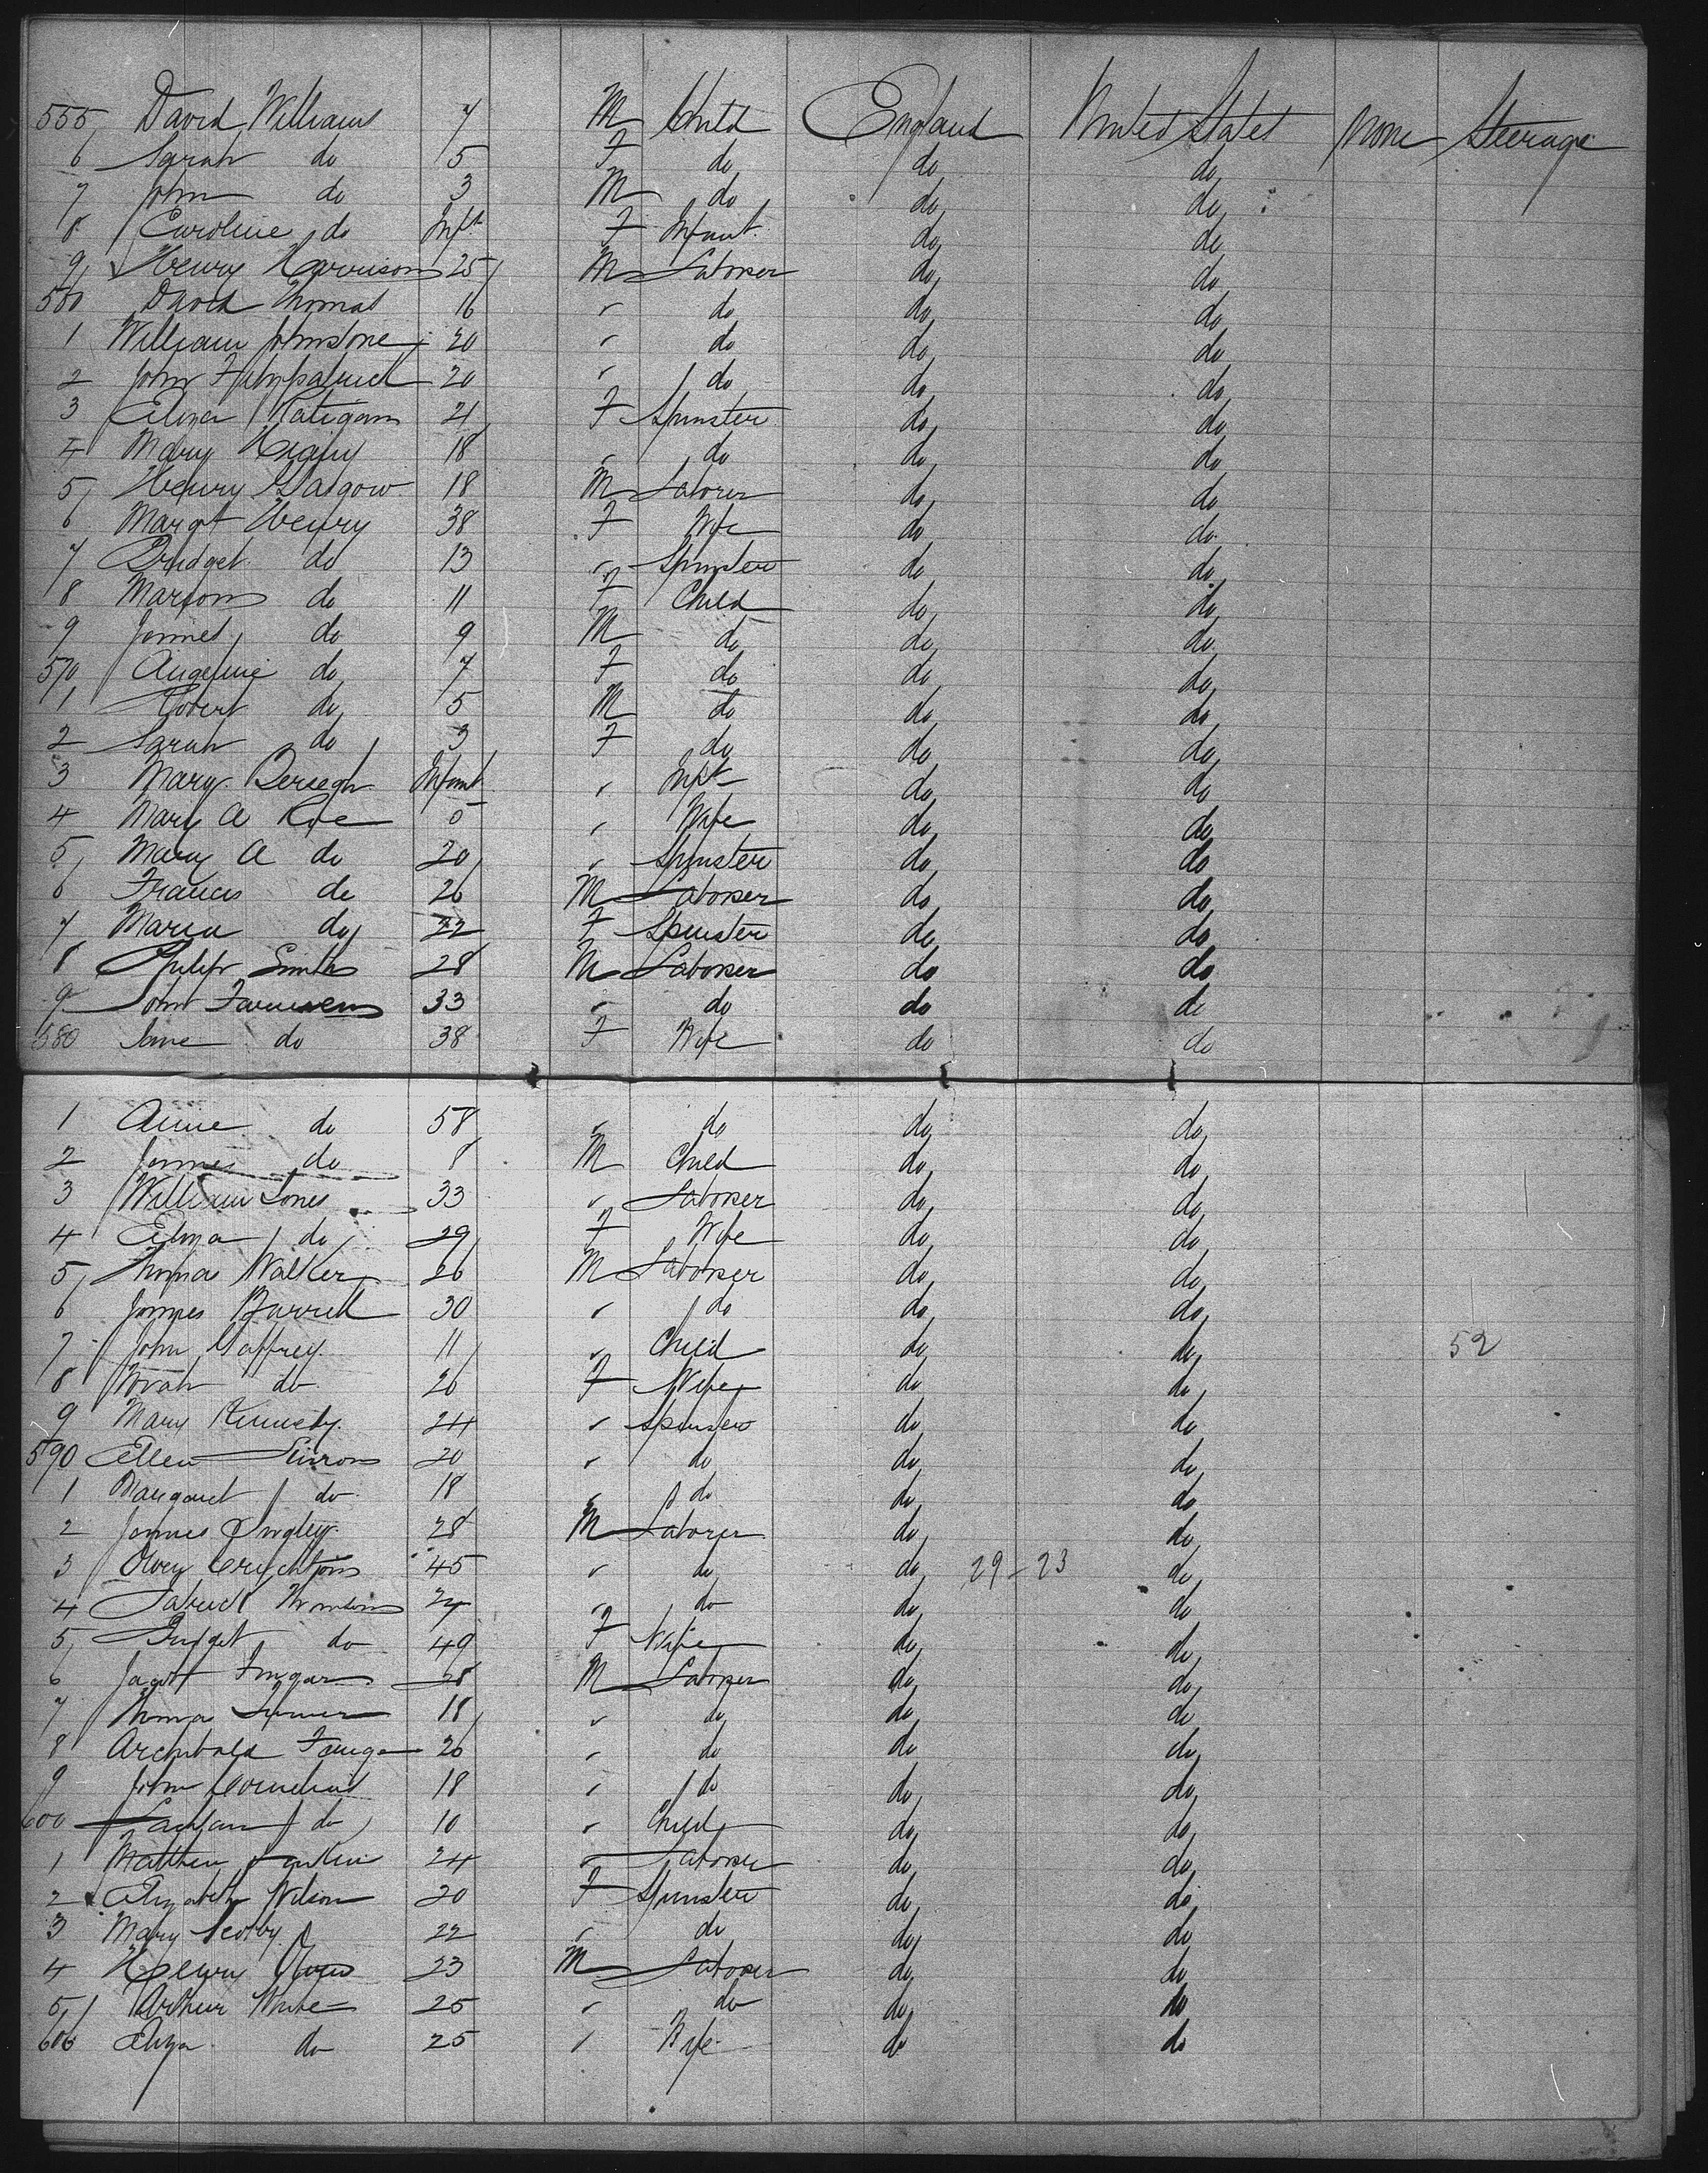 555 David Williams 7 M Child England United States None Steerage
6 Sarah do 5 F do do do
7 John do 3 M do do do
8 Caroline do Inft F Infant do do
9 Henry Harrison 25 M Laborer do do
560 David Thomas 16 " do do do
1 William Johnstone 20 " do do do
2 John Fitzpatrick 20 " do do do
3 Eliza Ratigan 21 F Spinster do do
4 Mary 18 " do do do
5 Henry Glasgow 18 M Laborer do do
6 Margt Henry 38 F Wife do do
7 Bridget do 13 " Spinster do do
8 Marion do 11 F Child do do
9 James do 9 M do do do
570 Angeline do 7 F do do do
1 Robert do 5 M do do do
2 Sarah do 3 F do do do
3 Mary Infant " Inft do do
4 Mary A Roe " Wife do do
5 Mary A do 20 " Spinster do do
6 Francis do 26 M Laborer do do
7 Maria do 22 F Spinster do do
8 Philip Smith 28 M Laborer do do
9 John 33 " do do do
580 Jane do 38 F Wife do do
1 Anne do 58 " do do do
2 James do 8 M Child do do
3 William Jones 33 " Laborer do do
4 Eliza do 29 F Wife do do
5 Thomas Walker 26 M Laborer do do
6 James 30 " do do do
7 John Gaffrey 11 " Child do do 52
8 Norah do 26 F Wife do do
9 Mary Kennedy 24 " Spinster do do
590 Ellen 20 " do do do
1 Margaret do 18 " do do do
2 James 28 M Laborer do do
3 Creighton 45 " do do 29-23 do
4 Patrick " do do do
5 Bridget do 49 F Wife do do
6 28 M Laborer do do
7 Thomas 18 " do do do
8 Archibald 26 " do do do
9 John Cornelius 18 " do do do
600 do 10 " Child do do
1 Matthew 24 " Laborer do do
2 Elizabeth Wilson 20 F Spinster do do
3 Mary 22 " do do do
4 Henry 23 M Laborer do do
5 Arthur White 25 " do do do
606 Eliza do 25 " Wife do do